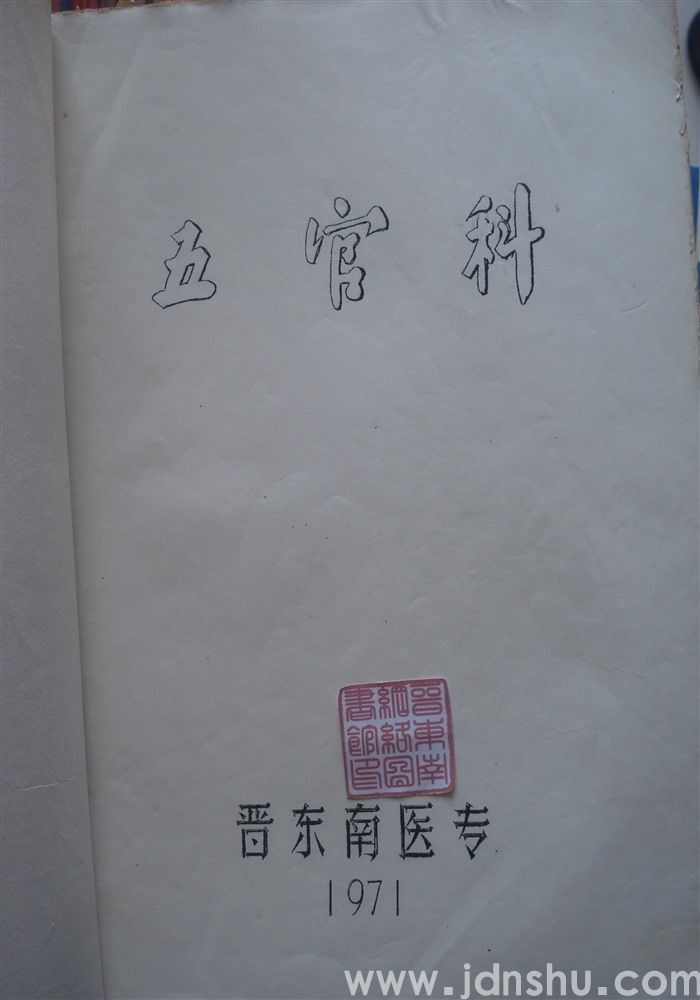 五官科
晋东南
網絡圖
書館印
晋东南医专
1971
www.jdnshu.com